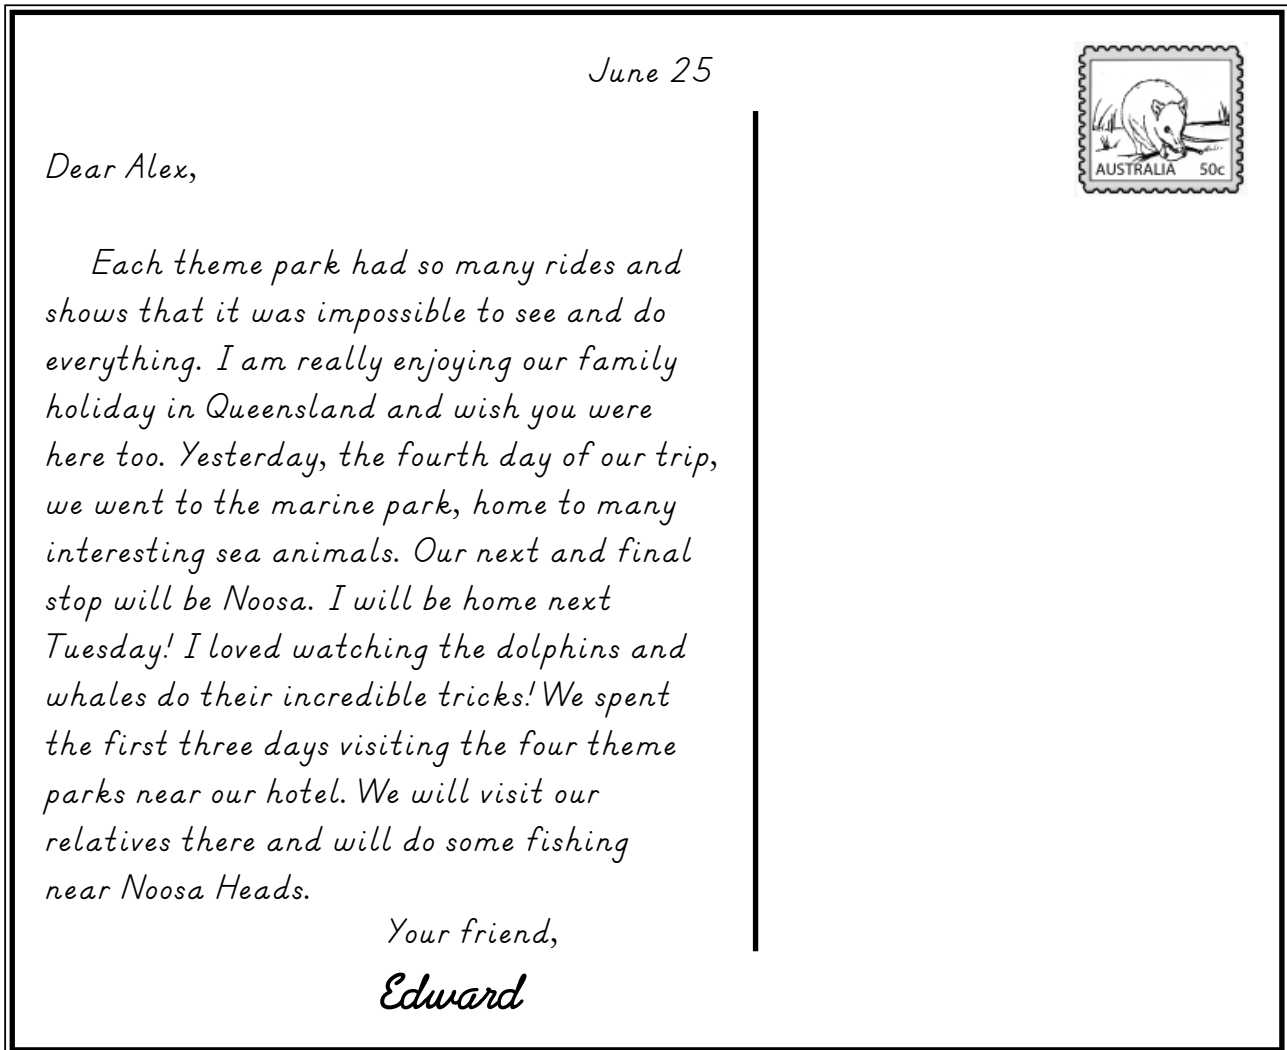 June 25
AUSTRALIA 50c
Dear Alex,
Each theme park had so many rides and
shows that it was impossible to see and do
everything. I am really enjoying our family
holiday in Queensland and wish you were
here too. Yesterday, the fourth day of our trip,
we went to the marine park, home to many
interesting sea animals. Our next and final
stop will be Noosa. I will be home next
Tuesday! I loved watching the dolphins and
whales do their incredible tricks! We spent
the first three days visiting the four theme
parks near our hotel. We will visit our
relatives there and will do some fishing
near Noosa Heads.
Your friend,
Edward